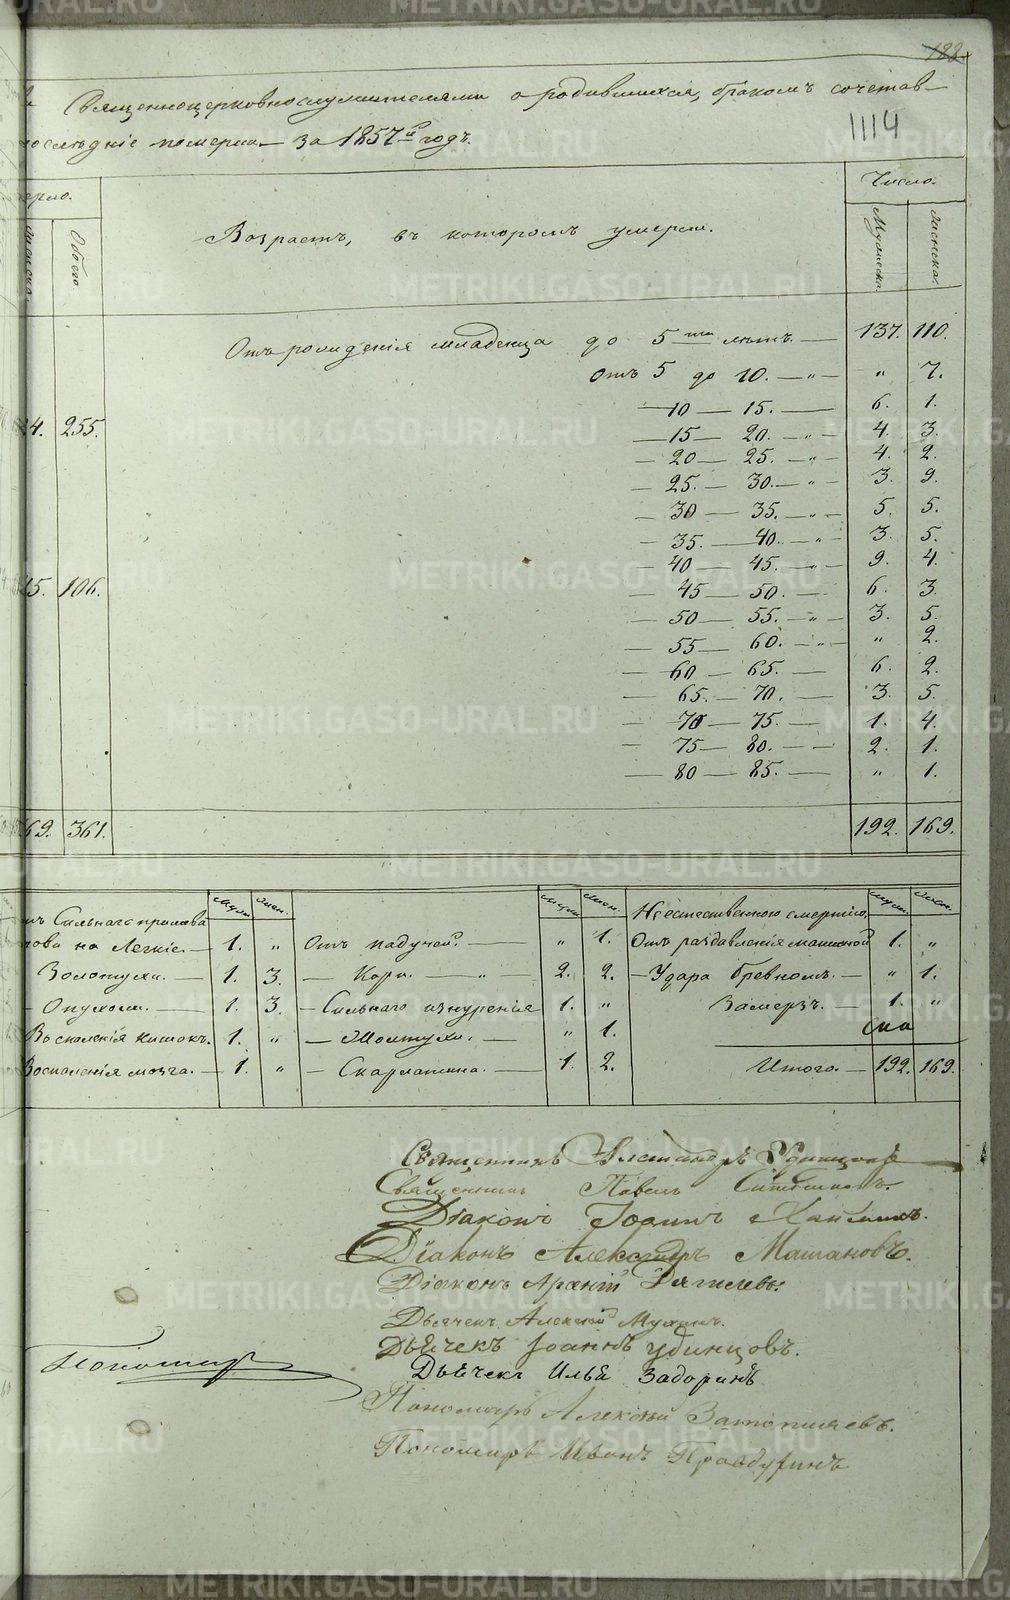 188.
1114
Священноцерковнослужителями о родившихся, бракомъ сочетав-
померли за 1857й годъ.
Обоего.
Возрастъ, въ которомъ умерли.
Число.
Мужеска.
Женска.
Отъ рожденія младенца до 5ти лѣтъ. — 137. 110.
Отъ 5 до 10. — „ — „ 7.
— 10 — 15. — 6. 1.
24. 255.
— 15 — 20. — „ — 4. 3.
— 20 — 25. — „ — 4. 2.
— 25. — 30. — „ — 3. 9.
— 30 — 35. — „ — 5. 5.
— 35. — 40. — „ — 3. 5.
— 40 — 45. — „ — 9. 4.
45. 106.
— 45 — 50. — 6. 3.
— 50 — 55. — „ — 3. 5.
— 55 — 60. — „ — „ 2.
— 60 — 65. — 6. 2.
— 65. — 70. — 3. 5.
— 70 — 75. — 1. 4.
— 75 — 80. — 2. 1.
— 80 — 85. — „ 1.
69. 361.
192. 169.
муж. жен. муж. жен. Неестественною смертію. муж. жен.
Сильнаго прилива
на Легкіе. — 1. „ Отъ падучей. — „ 1. Отъ раздавленія машиной 1. „
Золотухи. — 1. 3. — Кори. — „ — 2. 2. — Удара бревномъ. — „ 1.
Опухоли. — 1. 3. — Сильнаго изнуренія 1. „ Замерз. — 1. „
Воспаленія кишокъ. 1. „ — Желтухи. — „ 1.
Воспаленія мозга. — 1. „ — Скарлатина. — 1. 2. Итого. — 192. 169.
Священникъ Александръ Удинцовъ
Священникъ Павелъ
Діаконъ Іоаннъ
Діаконъ Александръ Машановъ.
Діаконъ
Дьячекъ Алексей
Дьячекъ Іоаннъ Удинцовъ.
Пономарь
Дьячекъ Илья Задоринъ
Пономарь Алексей
Пономарь Иванъ
METRIKI.GASO-URAL.RU